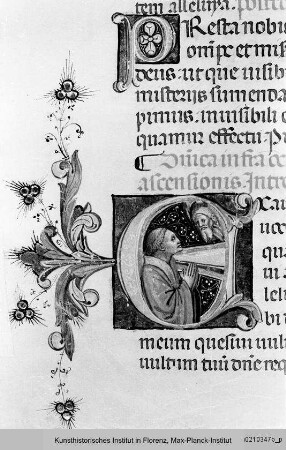 tem alleluya. Postco
PResta nobis
omnipc et mis
deus: ut que visibi
misterijs sumenda
pimus. invisibili c
quamur effectu. P
Dnica infra oc
ascensionis. Intro
EXau
uoce
qua
in a
lelui
ibi d
meum quesivi vult
vultum tuu dne req
Kunsthistorisches Institut in Florenz, Max-Planck-Institut